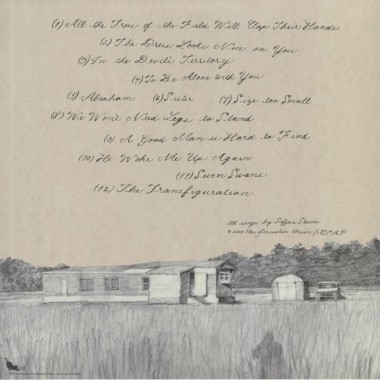 (1) All the Trees of the Field Will Clap Their Hands
(2) The Dress Looks Nice on You
(3) In the Devil's Territory
(4) To Be Alone with You
(5) Abraham (6) Sister (7) Size too Small
(8) We Won't Need Legs to Stand
(9) A Good Man is Hard to Find
(10) He Woke Me Up Again
(11) Seven Swans
(12) The Transfiguration
All songs by Sufjan Stevens
Music / ASCAP